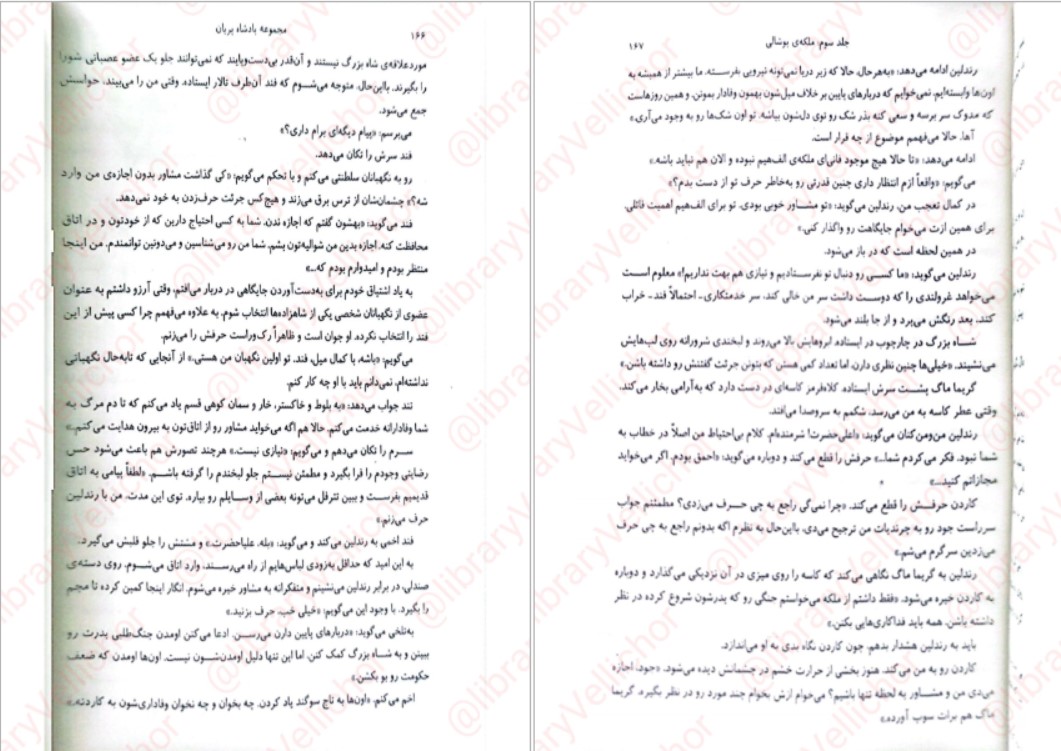 ۱۶۶
مجموعه پادشاه پریان
موردعلاقه‌ی شاه بزرگ نیستند و آن‌قدر بی‌دست‌وپایند که نمی‌توانند جلو یک عضو عصبانی شورا
را بگیرند. بااین‌حال، متوجه می‌شوم که فند آن‌طرف تالار ایستاده. وقتی من را می‌بیند، حواسش
جمع می‌شود.
می‌پرسم: «پیام دیگه‌ای برام داری؟»
فند سرش را تکان می‌دهد.
رو به نگهبانان سلطنتی می‌کنم و با تحکم می‌گویم: «کی گذاشت مشاور بدون اجازه‌ی من وارد
شه؟» چشمان‌شان از ترس برق می‌زند و هیچ‌کس جرئت حرف‌زدن به خود نمی‌دهد.
فند می‌گوید: «بهشون گفتم که اجازه ندن. شما به کسی احتیاج دارین که از خودتون و در اتاق
محافظت کنه. اجازه بدین من شوالیه‌تون بشم. شما من رو می‌شناسین و می‌دونین توانمندم. من اینجا
منتظر بودم و امیدوارم بودم که...»
به یاد اشتیاق خودم برای به‌دست‌آوردن جایگاهی در دربار می‌افتم، وقتی آرزو داشتم به عنوان
عضوی از نگهبانان شخصی یکی از شاهزاده‌ها انتخاب شوم. به علاوه می‌فهمم چرا کسی پیش از این
فند را انتخاب نکرده. او جوان است و ظاهراً رک‌وراست حرفش را می‌زند.
می‌گویم: «باشه. با کمال میل، فند. تو اولین نگهبان من هستی.» از آنجایی که تابه‌حال نگهبانی
نداشته‌ام، نمی‌دانم باید با او چه کار کنم.
فند جواب می‌دهد: «به بلوط و خاکستر، خار و سمان کوهی قسم یاد می‌کنم که تا دم مرگ به
شما وفادارانه خدمت می‌کنم. حالا هم اگه می‌خواید مشاور رو از اتاق‌تون به بیرون هدایت می‌کنم.»
سرم را تکان می‌دهم و می‌گویم: «نیازی نیست.» هرچند تصورش هم باعث می‌شود حس
رضایتی وجودم را فرا بگیرد و مطمئن نیستم جلو لبخندم را گرفته باشم. «لطفاً پیامی به اتاق
قدیمیم بفرست و ببین تترفل می‌تونه بعضی از وسایلم رو بیاره. توی این مدت، من با رندلین
حرف می‌زنم.»
فند اخمی به رندلین می‌کند و می‌گوید: «بله، علیاحضرت» و مشتش را جلو قلبش می‌گیرد.
به این امید که حداقل به‌زودی لباس‌هایم از راه می‌رسند، وارد اتاق می‌شوم. روی دسته‌ی
صندلی، در برابر رندلین می‌نشینم و متفکرانه به مشاور خیره می‌شوم. انگار اینجا کمین کرده تا مچم
را بگیرد. با وجود این می‌گویم: «خیلی خب. حرف بزنید.»
به‌تلخی می‌گوید: «دربارهای پایین دارن می‌رسن. ادعا می‌کنن اومدن جنگ‌طلبی پدرت رو
ببینن و به شاه بزرگ کمک کنن، اما این تنها دلیل اومدن‌شون نیست. اون‌ها اومدن که ضعف
حکومت رو بو بکشن.»
اخم می‌کنم. «اون‌ها به تاج سوگند یاد کردن. چه بخوان و چه نخوان وفاداری‌شون به کاردنه.»
جلد سوم: ملکه‌ی پوشالی
۱۶۷
رندلین ادامه می‌دهد: «به‌هرحال، حالا که زیر دریا نمی‌تونه نیرویی بفرسته، ما بیشتر از همیشه به
اون‌ها وابسته‌ایم. نمی‌خوایم که دربارهای پایین بر خلاف میل‌شون بهمون وفادار بمونن. و همین روزهاست
که مدوک سر برسه و سعی کنه بذر شک رو توی دل‌شون بپاشه. تو اون شک‌ها رو به وجود می‌آری.»
آها. حالا می‌فهمم موضوع از چه قرار است.
ادامه می‌دهد: «تا حالا هیچ موجود فانی‌ای ملکه‌ی الف‌هیم نبوده و الان هم نباید باشه.»
می‌گویم: «واقعاً ازم انتظار داری چنین قدرتی رو به‌خاطر حرف تو از دست بدم؟»
در کمال تعجب من، رندلین می‌گوید: «تو مشاور خوبی بودی. تو برای الف‌هیم اهمیت قائلی.
برای همین ازت می‌خوام جایگاهت رو واگذار کنی.»
در همین لحظه است که در باز می‌شود.
رندلین می‌گوید: «ما کسی رو دنبال تو نفرستادیم و نیازی هم بهت نداریم!» معلوم است
می‌خواهد غرولندی را که دوست داشت سر من خالی کند، سر خدمتکاری- احتمالاً فند- خراب
کند. بعد رنگش می‌پرد و از جا بلند می‌شود.
شاه بزرگ در چارچوب در ایستاده. ابروهایش بالا می‌روند و لبخندی شرورانه روی لب‌هایش
می‌نشیند. «خیلی‌ها چنین نظری دارن، اما تعداد کمی هستن که بتونن جرئت گفتنش رو داشته باشن.»
گریما ماگ پشت سرش ایستاده. کلاه‌قرمز کاسه‌ای در دست دارد که به‌آرامی بخار می‌کند.
وقتی عطر کاسه به من می‌رسد، شکمم به سروصدا می‌افتد.
رندلین من‌ومن‌کنان می‌گوید: «اعلی‌حضرت! شرمنده‌ام. کلام بی‌احتیاط من اصلاً در خطاب به
شما نبود. فکر می‌کردم شما...» حرفش را قطع می‌کند و دوباره می‌گوید: «احمق بودم. اگر می‌خواید
مجازاتم کنید...»
کاردن حرفش را قطع می‌کند. «چرا نمی‌گی راجع به چی حرف می‌زدی؟ مطمئنم جواب
سرراست جود رو به چرندیات من ترجیح می‌دی، بااین‌حال به نظرم اگه بدونم راجع به چی حرف
می‌زدین سرگرم می‌شم.»
رندلین به گریما ماگ نگاهی می‌کند که کاسه را روی میزی در آن نزدیکی می‌گذارد و دوباره
به کاردن خیره می‌شود. «فقط داشتم از ملکه می‌خواستم جنگی رو که پدرشون شروع کرده در نظر
داشته باشن. همه باید فداکاری‌هایی بکنن.»
باید به رندلین هشدار بدهم، چون کاردن نگاه بدی به او می‌اندازد.
کاردن رو به من می‌کند. هنوز بخشی از حرارت خشم در چشمانش دیده می‌شود. «جود، اجازه
می‌دی من و مشاور یه لحظه تنها باشیم؟ می‌خوام ازش بخوام چند مورد رو در نظر بگیره. گریما
ماگ هم برات سوپ آورده.»
@libraryVellichor